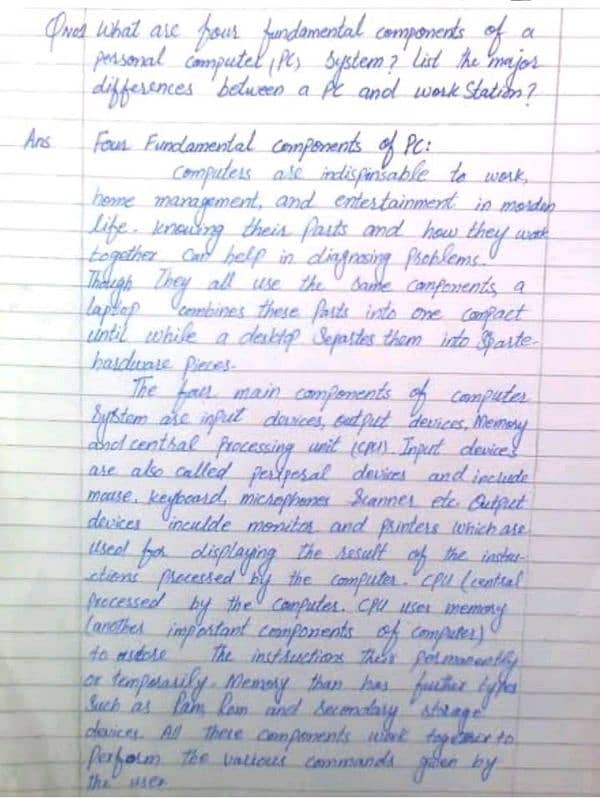 QNo1 What are four fundamental components of a
personal computer, (PC) System? List the major
differences between a PC and work Station?
Ans Four Fundamental components of PC:
Computers are indispinsable to work,
home management, and entertainment in mordan
life. knowing their Parts and how they work
together can help in diagnosing Problems.
Though They all use the Same components, a
laptop combines these Parts into one compact
until while a desktop Separtes them into Sparte
hardware Pieces.
The four main components of computer
System are input devices, output devices, Memory
and central Processing unit (CPU). Input devices
are also called peripesal devices and include
mouse, keyboard, microphones Scanner etc. Output
devices inculde monitor and Printers which are
used for displaying the result of the instru-
ctions processed by the computer. CPU (central
Processed by the Computer. CPU uses memory
(another important components of computer)
to the instructions permanently
or temporarily. Memory than has further types
Such as Ram, Rom and Secondary storage
devices. All these components work together to
Perform the various commands given by
the user.